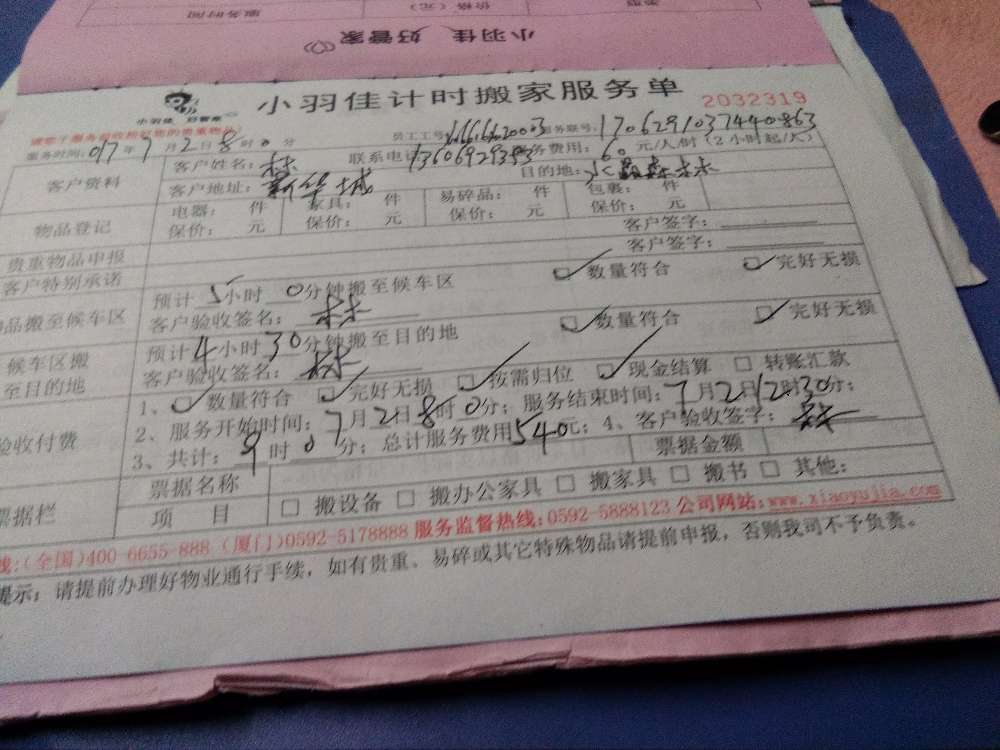 服务时间 价格（元） 类型
小羽佳 好管家
小羽佳 好管家
小羽佳计时搬家服务单 2032319
服务时间：017年7月2日8时0分 员工工号 服务联号：1706291037440863
客户资料 客户姓名：林 联系电话 服务费用：60元/人/时（2小时起/人）
客户地址：新华城 目的地：
物品登记 电器： 件 家具： 件 易碎品： 件 包裹： 件
保价： 元 保价： 元 保价： 元 保价： 元
贵重物品申报 客户签字：
客户特别承诺 客户签字：
品搬至候车区 预计 小时 0分钟搬至候车区 数量符合 完好无损
客户验收签名：林
候车区搬至目的地 预计4小时30分钟搬至目的地 数量符合 完好无损
客户验收签名：林
验收付费 1、 数量符合 完好无损 按需归位 现金结算 转账汇款
2、服务开始时间：7月2日8时0分；服务结束时间：7月2日12时30分；
3、共计：9时0分；总计服务费用540元；4、客户验收签字：林
票据栏 票据名称 票据金额
项 目 搬设备 搬办公家具 搬家具 搬书 其他：
线：（全国）400-6655-888 （厦门）0592-5178888 服务监督热线：0592-5888123 公司网站：www.xiaoyujia.com
提示：请提前办理好物业通行手续，如有贵重、易碎或其它特殊物品请提前申报，否则我司不予负责。